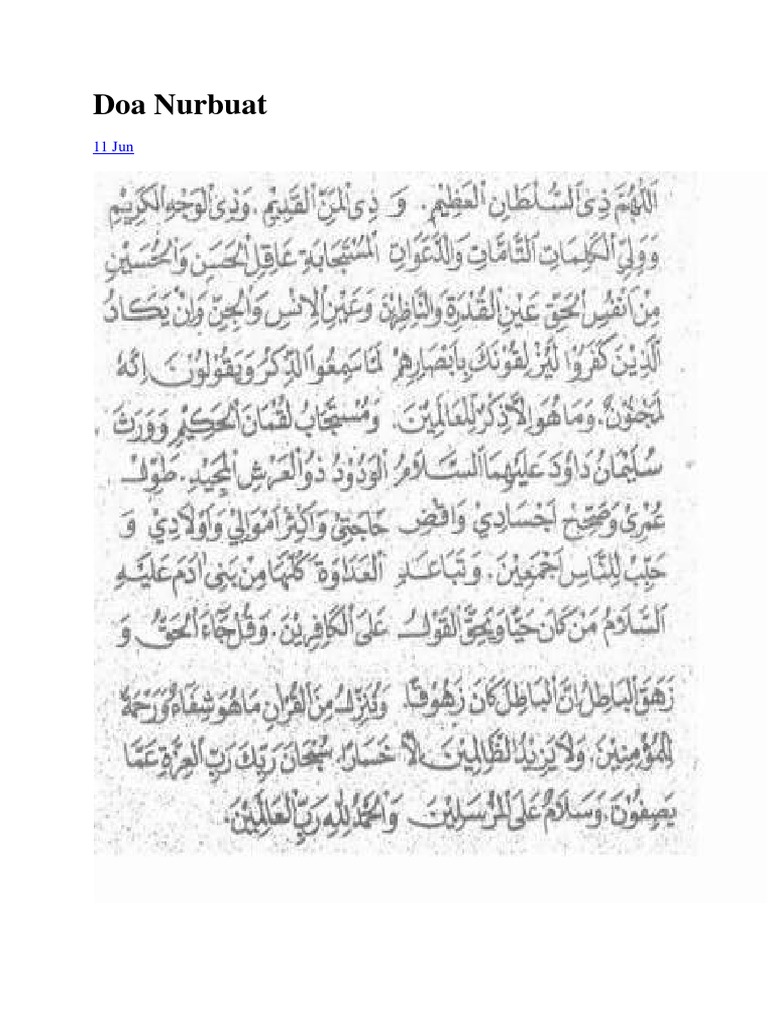 Doa Nurbuat
11 Jun
اَللّٰهُمَّ ذِى السُّلْطَانِ الْعَظِيْمِ. وَ ذِى الْمَنِّ الْقَدِيْمِ. وَذِى الْوَجْهِ الْكَرِيْمِ
وَوَلِيِّ الْكَلِمَاتِ التَّآمَّاتِ وَالدَّعَوَاتِ الْمُسْتَجَابَةِ عَاقِلِ الْحَسَنِ وَالْحُسَيْنِ
مِنْ اَنْفُسِ الْحَقِّ عَيْنِ الْقُدْرَةِ وَالنَّاظِرِيْنَ وَعَيْنِ الْاِنْسِ وَالْجِنِّ وَاِنْ يَكَادُ
الَّذِيْنَ كَفَرُوْا لَيُزْلِقُوْنَكَ بِاَبْصَارِهِمْ لَمَّا سَمِعُوا الذِّكْرَ وَيَقُوْلُوْنَ اِنَّهُ
لَمَجْنُوْنٌ. وَمَا هُوَ اِلَّا ذِكْرٌ لِلْعَالَمِيْنَ. وَمُسْتَجَابُ لُقْمَانَ الْحَكِيْمِ وَوَرِثَ
سُلَيْمَانُ دَاوُدَ عَلَيْهِمَا السَّلَامُ الْوَدُوْدُ ذُو الْعَرْشِ الْمَجِيْدِ. طَوِّلْ
عُمْرِيْ وَصَحِّحْ اَجْسَادِيْ وَاقْضِ حَاجَتِيْ وَاَكْثِرْ اَمْوَالِيْ وَاَوْلَادِيْ وَ
حَبِّبْ لِلنَّاسِ اَجْمَعِيْنَ. وَتَبَاعَدِ الْعَدَاوَةَ كُلَّهَا مِنْ بَنِيْ اٰدَمَ عَلَيْهِ
السَّلَامُ مَنْ كَانَ حَيًّا وَيَحِقَّ الْقَوْلُ عَلَى الْكَافِرِيْنَ. وَقُلْ جَآءَ الْحَقُّ وَ
زَهَقَ الْبَاطِلُ اِنَّ الْبَاطِلَ كَانَ زَهُوْقًا. وَنُنَزِّلُ مِنَ الْقُرْاٰنِ مَا هُوَ شِفَاءٌ وَرَحْمَةٌ
لِلْمُؤْمِنِيْنَ. وَلَا يَزِيْدُ الظَّالِمِيْنَ اِلَّا خَسَارًا. سُبْحَانَ رَبِّكَ رَبِّ الْعِزَّةِ عَمَّا
يَصِفُوْنَ. وَسَلَامٌ عَلَى الْمُرْسَلِيْنَ وَالْحَمْدُ لِلّٰهِ رَبِّ الْعَالَمِيْنَ.